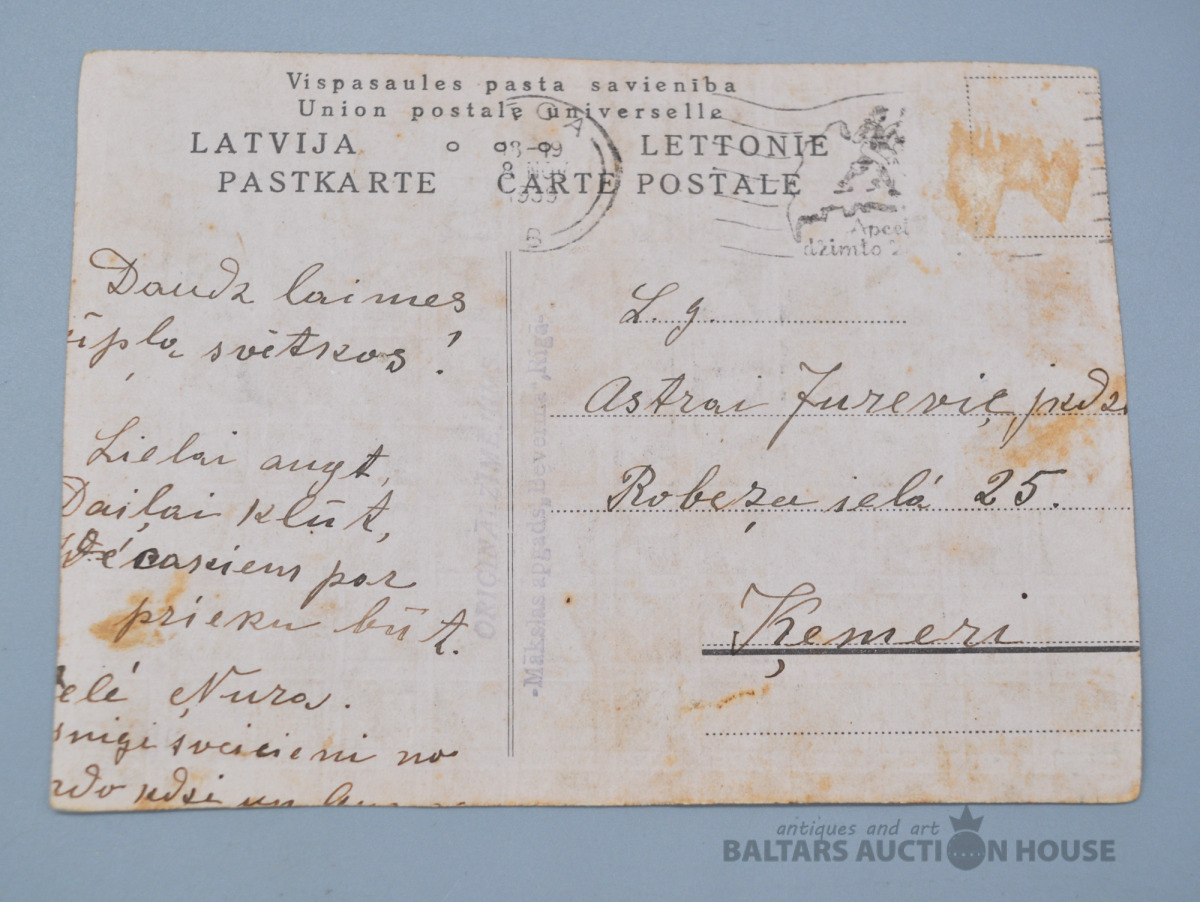 Vispasaules pasta savienība
Union postale universelle
LATVIJA LETTONIE
PASTKARTE CARTE POSTALE
1939
B
Apcel
dzimto
Daudz laimes
svētkos!
Lielai augt,
Daiļai kļūt,
par
prieku būt.
Nura.
sveicieni no
un
ORIĢINĀLZĪMĒJUMS
-Mākslas apgāds, Bēverīna, Rīgā-
L. g.
Astrai Jurevič jkdz
Robežu ielā 25.
Ķemeri
antiques and art
BALTARS AUCTION HOUSE